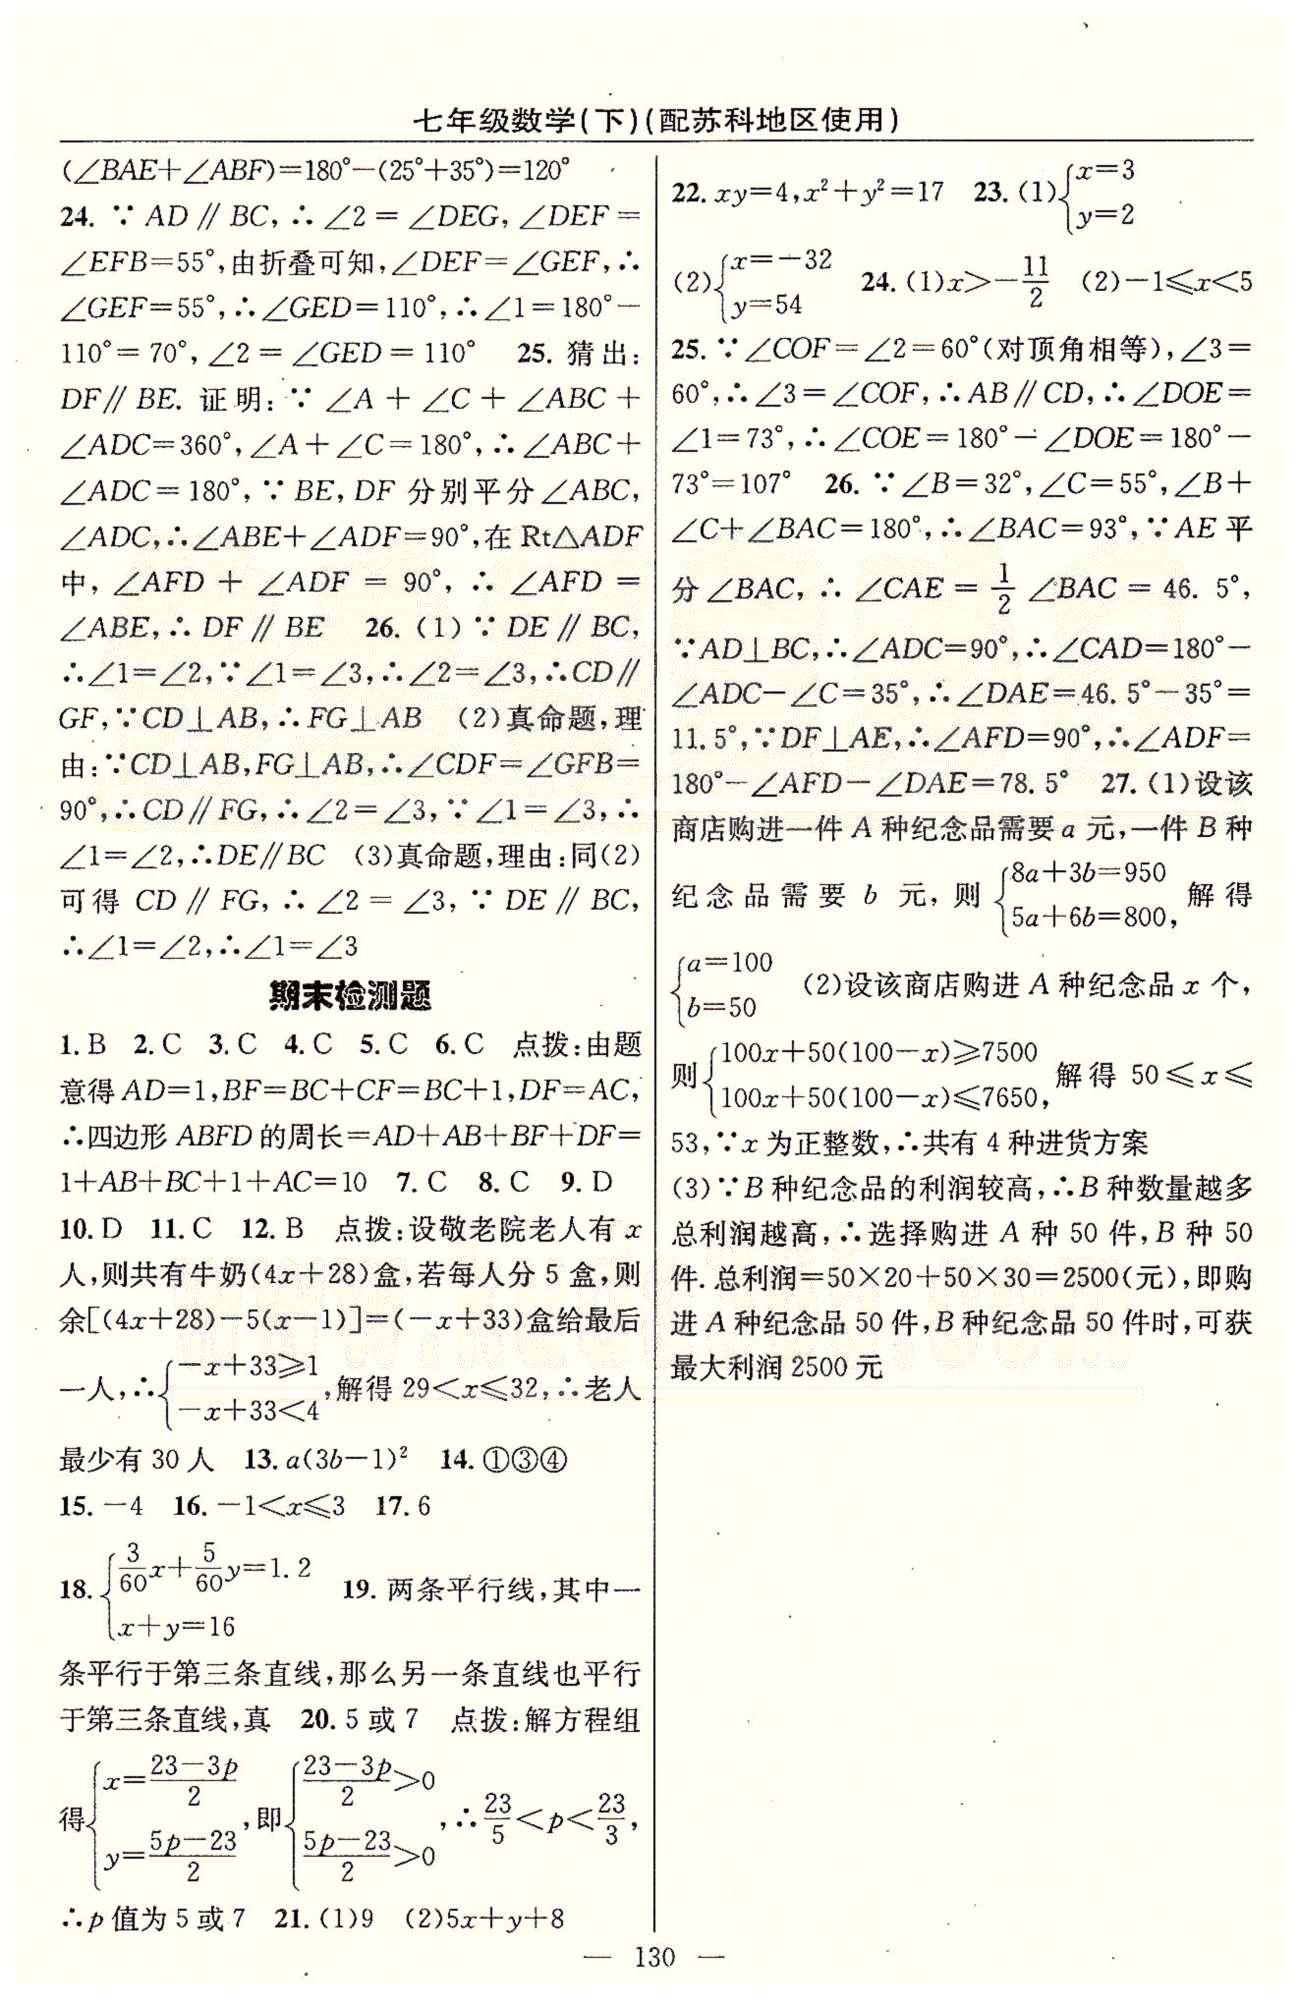 七年级数学(下)(配苏科地区使用)
(∠BAE+∠ABF)=180°-(25°+35°)=120°
24. ∵ AD∥BC, ∴ ∠2=∠DEG, ∠DEF=
∠EFB=55°,由折叠可知,∠DEF=∠GEF,∴
∠GEF=55°,∴∠GED=110°,∴∠1=180°-
110°=70°, ∠2=∠GED=110° 25. 猜出:
DF∥BE. 证明:∵ ∠A+∠C+∠ABC+
∠ADC=360°,∠A+∠C=180°,∴∠ABC+
∠ADC=180°,∵BE,DF 分别平分∠ABC,
∠ADC,∴∠ABE+∠ADF=90°,在 Rt△ADF
中, ∠AFD+∠ADF=90°, ∴ ∠AFD=
∠ABE,∴DF∥BE 26. (1)∵DE∥BC,
∴∠1=∠2,∵∠1=∠3,∴∠2=∠3,∴CD∥
GF,∵CD⊥AB,∴FG⊥AB (2)真命题,理
由:∵CD⊥AB,FG⊥AB,∴∠CDF=∠GFB=
90°,∴CD∥FG,∴∠2=∠3,∵∠1=∠3,∴
∠1=∠2,∴DE∥BC (3)真命题,理由:同(2)
可得 CD∥FG, ∴ ∠2=∠3, ∵ DE∥BC,
∴∠1=∠2,∴∠1=∠3
期末检测题
1. B 2. C 3. C 4. C 5. C 6. C 点拨:由题
意得 AD=1,BF=BC+CF=BC+1,DF=AC,
∴四边形 ABFD 的周长=AD+AB+BF+DF=
1+AB+BC+1+AC=10 7. C 8. C 9. D
10. D 11. C 12. B 点拨:设敬老院老人有 x
人,则共有牛奶(4x+28)盒,若每人分 5 盒,则
余[(4x+28)-5(x-1)]=(-x+33)盒给最后
一人,∴{-x+33≥1 -x+33<4,解得 29<x≤32,∴老人
最少有 30 人 13. a(3b-1)² 14. ①③④
15. -4 16. -1<x≤3 17. 6
18. {3/60x+5/60y=1.2 x+y=16 19. 两条平行线,其中一
条平行于第三条直线,那么另一条直线也平行
于第三条直线,真 20. 5 或 7 点拨:解方程组
得{x=(23-3p)/2 y=(5p-23)/2,即{(23-3p)/2>0 (5p-23)/2>0,∴23/5<p<23/3,
∴p 值为 5 或 7 21. (1)9 (2)5x+y+8
22. xy=4,x²+y²=17 23. (1){x=3 y=2
(2){x=-32 y=54 24. (1)x>-11/2 (2)-1≤x<5
25. ∵∠COF=∠2=60°(对顶角相等),∠3=
60°,∴∠3=∠COF,∴AB∥CD,∴∠DOE=
∠1=73°,∴∠COE=180°-∠DOE=180°-
73°=107° 26. ∵∠B=32°,∠C=55°,∠B+
∠C+∠BAC=180°,∴∠BAC=93°,∵AE 平
分∠BAC, ∴ ∠CAE=1/2∠BAC=46. 5°,
∵AD⊥BC,∴∠ADC=90°,∴∠CAD=180°-
∠ADC-∠C=35°,∴∠DAE=46. 5°-35°=
11. 5°,∵DF⊥AE,∴∠AFD=90°,∴∠ADF=
180°-∠AFD-∠DAE=78. 5° 27. (1)设该
商店购进一件 A 种纪念品需要 a 元,一件 B 种
纪念品需要 b 元, 则{8a+3b=950 5a+6b=800, 解得
{a=100 b=50 (2)设该商店购进 A 种纪念品 x 个,
则{100x+50(100-x)≥7500 100x+50(100-x)≤7650, 解得 50≤x≤
53,∵x 为正整数,∴共有 4 种进货方案
(3)∵B 种纪念品的利润较高,∴B 种数量越多
总利润越高,∴选择购进 A 种 50 件,B 种 50
件. 总利润=50×20+50×30=2500(元),即购
进 A 种纪念品 50 件,B 种纪念品 50 件时,可获
最大利润 2500 元
— 130 —